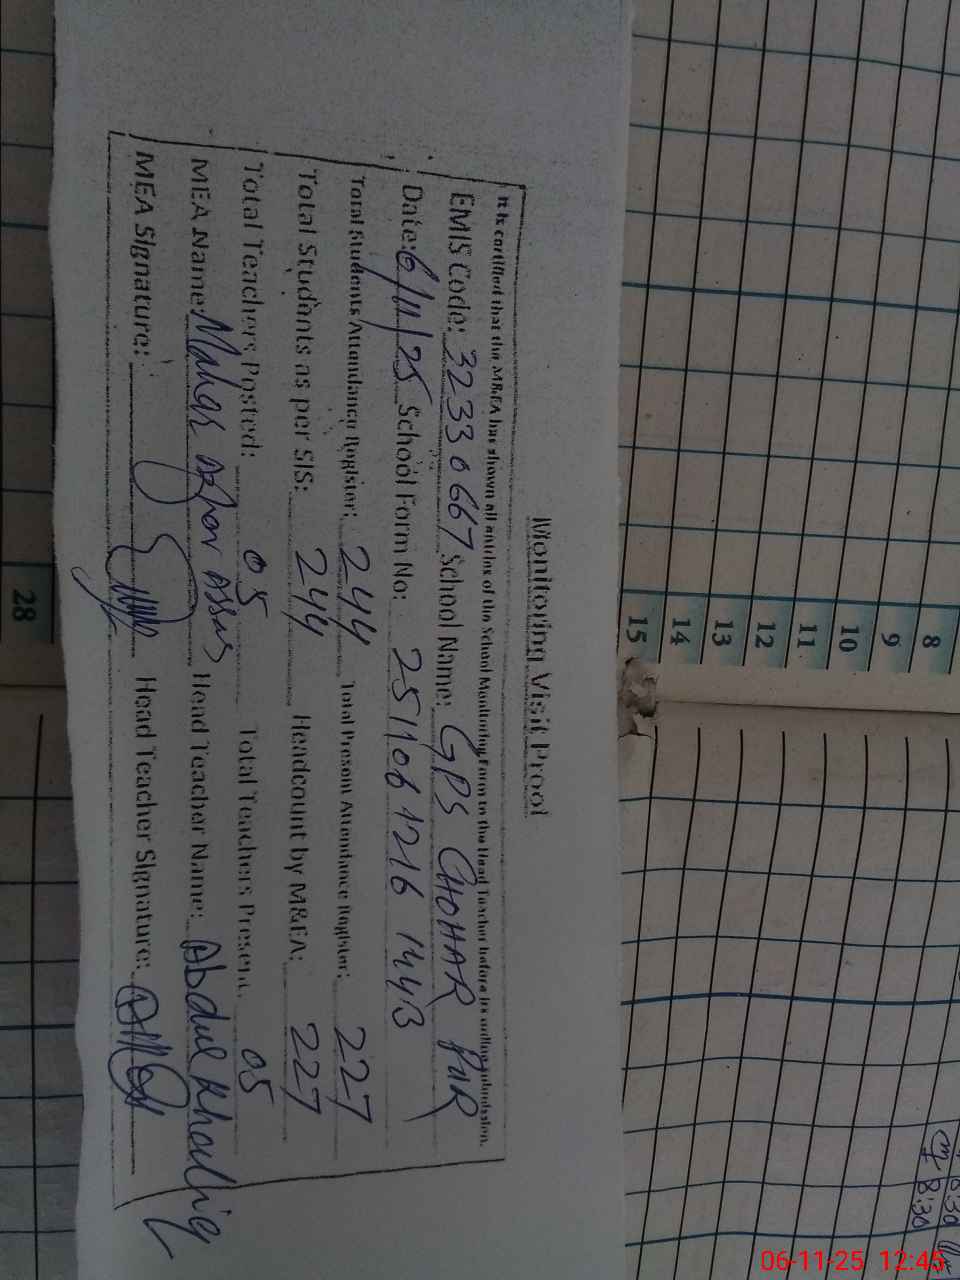 Monitoring Visit Proof
It is certified that the M&EA has shown all entries of the School Monitoring Form to the Head Teacher before its online submission.
EMIS Code: 32330667 School Name: GPS CHOHAR PUR
Date: 6/11/25 School Form No: 251106 1216 1443
Total Students Attendance Register: 244 Total Present Attendance Register: 227
Total Students as per SIS: 244 Headcount by M&EA: 227
Total Teachers Posted: 05 Total Teachers Present: 05
MEA Name: Head Teacher Name: Abdul Khaliq
MEA Signature: Head Teacher Signature:
8
9
10
11
12
13
14
15
28
8:30
8:30
06-11-25 12:45